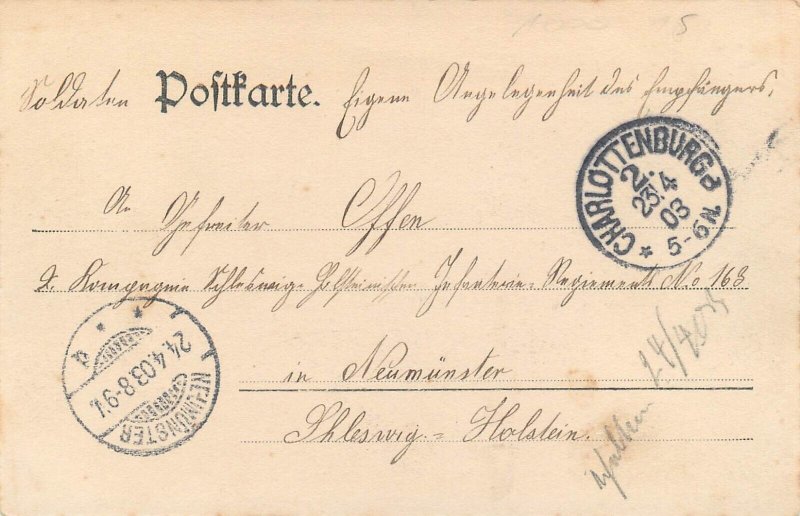 Soldaten Postkarte. Eigene Angelegenheit des Empfängers.
An Gefreiter Offen
2. Kompagnie Schleswig-Holsteinischen Infanterie-Regiement No 163
in Neumünster
Shleswig-Holstein.
CHARLOTTENBURG 2.
23.4
03
5-6N.
NEUMÜNSTER
24.4.03.8-9V.
24/4 03
5